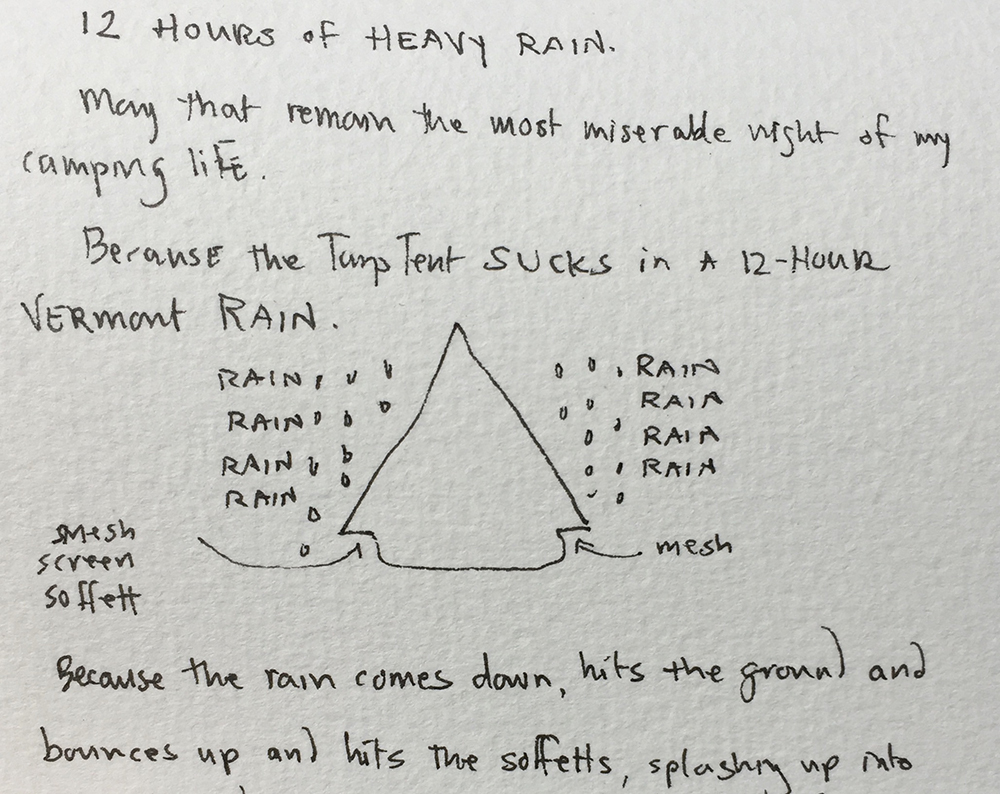 12 HOURS of HEAVY RAIN.
May that remain the most miserable night of my
camping life.
Because the TarpTent SUCKS in A 12-HOUR
VERmont RAIN.
RAIN
RAIN
RAIN
RAIN
RAIN
RAIN
RAIN
RAIN
mesh
screen
soffett
mesh
Because the rain comes down, hits the ground and
bounces up and hits the soffetts, splashing up into